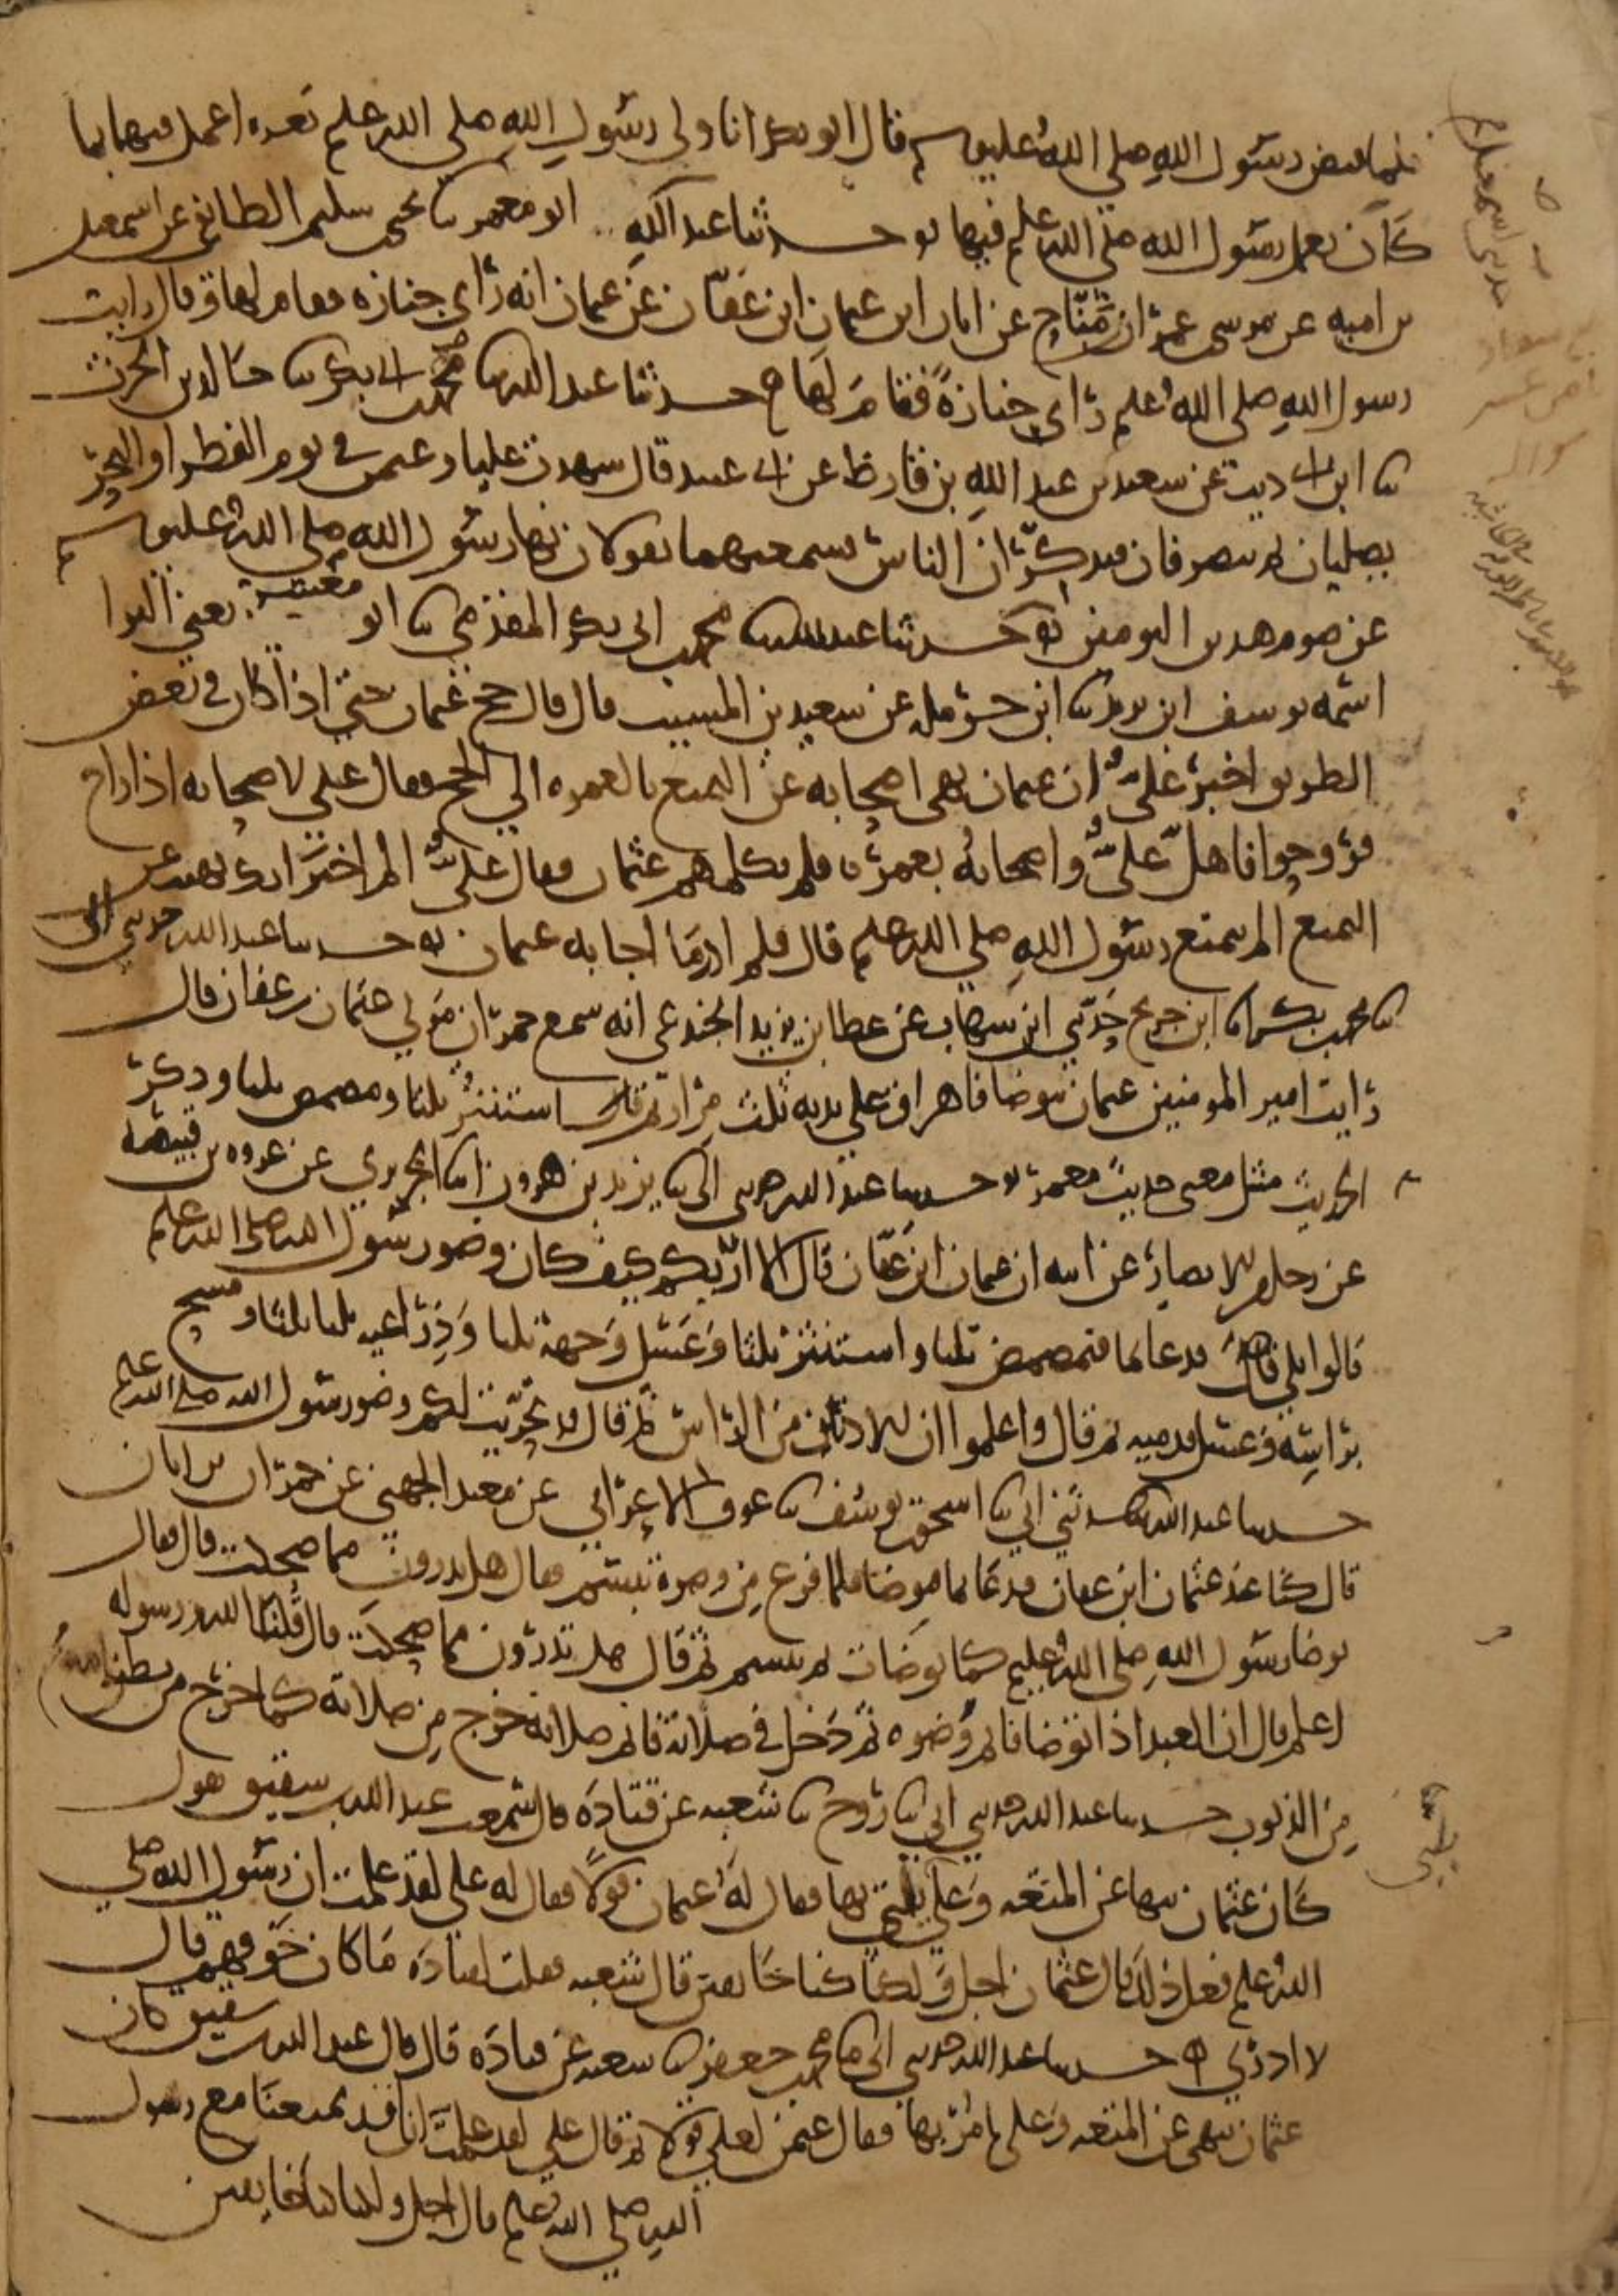 فلما قبض رسول الله صلى الله عليه وسلم قال ابو بكر انا ولي رسول الله صلى الله عليه وسلم بعده اعمل فيها بما
كان يعمل رسول الله صلى الله عليه وسلم فيها حدثنا عبد الله ابو معمر ثنا يحيى بن سليم الطائفي عن اسمعيل
بن اميه عن موسى بن عمران بن مناح عن ابان ابن عثمان ابن عفان عن عثمان انه راى جنازه فقام لها وقال رايت
رسول الله صلى الله عليه وسلم راى جنازة فقام لها حدثنا عبد الله ثنا محمد بن ابي بكر ثنا خالد بن الحرث
ثنا ابن ابي ديب عن سعيد بن عبد الله بن قارظ عن ابي عبيد قال شهدت عليا وعثمن في يوم الفطر او النحر
يصليان ثم ينصرفان فيذكران الناس فسمعتهما يقولان نهى رسول الله صلى الله عليه وسلم
عن صوم هذين اليومين حدثنا عبد الله ثنا محمد بن ابي بكر المقدمي ثنا ابو معشر يعني البرا
اسمه يوسف ابن يزيد ثنا ابن حرمله عن سعيد بن المسيب قال قال حج عثمان حتى اذا كان في بعض
الطريق اخبر علي ان عثمان نهى اصحابه عن التمتع بالعمره الى الحج فقال علي لاصحابه اذا راح
فروحوا فاهل علي واصحابه بعمره فلم يكلمهم عثمان فقال علي الم اخبر انك نهيت عن
التمتع الم يتمتع رسول الله صلى الله عليه وسلم قال فلم ادر ما اجابه عثمان حدثنا عبد الله حدثني ابي
ثنا محمد بن بكر انا ابن جريج حدثني ابن شهاب عن عطا بن يزيد الجندعي انه سمع حمران مولى عثمان بن عفان قال
رايت امير المومنين عثمان يتوضا فاهراق على يديه ثلث مرار ثم استنثر ثلثا ومضمض ثلثا وذكر
الحديث مثل معنى حديث معمر حدثنا عبد الله حدثني ابي ثنا يزيد بن هرون انا الجريري عن عروه بن قبيصة
عن رجل من الانصار عن ابيه ان عثمان ابن عفان قال الا اريكم كيف كان وضو رسول الله صلى الله عليه وسلم
قالوا بلى فدعا بما فتمضمض ثلثا واستنثر ثلثا وغسل وجهه ثلثا وذراعيه ثلثا ثلثا ومسح
براسه وغسل قدميه ثم قال واعلموا ان الاذنين من الراس ثم قال قد تحريت لكم وضو رسول الله صلى الله عليه وسلم
حدثنا عبد الله حدثني ابي ثنا اسحق بن يوسف ثنا عوف الاعرابي عن معبد الجهني عن حمران بن ابان
قال كنا عند عثمان ابن عفان فدعا بما فتوضا فلما فرغ من وضوه تبسم فقال هل تدرون مما ضحكت قال فقال
توضا رسول الله صلى الله عليه وسلم كما توضات ثم تبسم ثم قال هل تدرون مما ضحكت قال قلنا الله ورسوله
اعلم قال ان العبد اذا توضا فاتم وضوه ثم دخل في صلاته فاتم صلاته خرج من صلاته كما خرج من بطن امه
من الذنوب حدثنا عبد الله حدثني ابي ثنا روح ثنا شعبه عن قتادة قال سمعت عبد الله بن شقيق يقول
كان عثمان ينهى عن المتعه وعلي يلبي بها فقال له عثمان قولا فقال له علي لقد علمت ان رسول الله صلى
الله عليه وسلم فعل ذلك قال عثمان اجل ولكنا كنا خايفين قال شعبه فقلت لقتادة ما كان خوفهم قال
لا ادري حدثنا عبد الله حدثني ابي ثنا محمد بن جعفر ثنا سعيد عن قتادة قال قال عبد الله بن شقيق كان
عثمان ينهى عن المتعه وعلي يامر بها فقال عثمن لعلي قولا ثم قال علي لقد علمت انا قد تمتعنا مع رسول
الله صلى الله عليه وسلم قال اجل ولكنا كنا خايفين